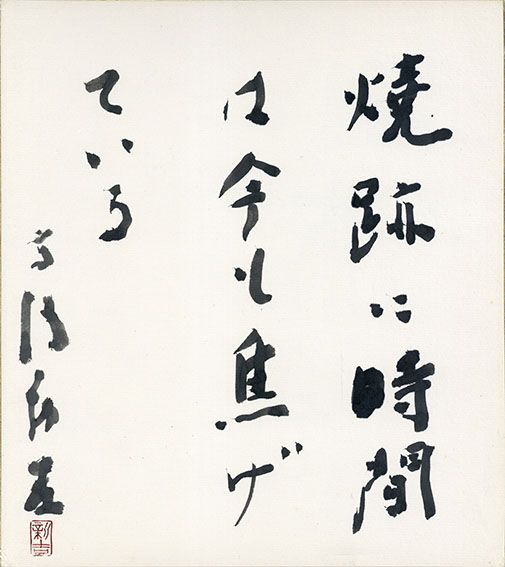 焼跡に時間
は今も焦げ
ている